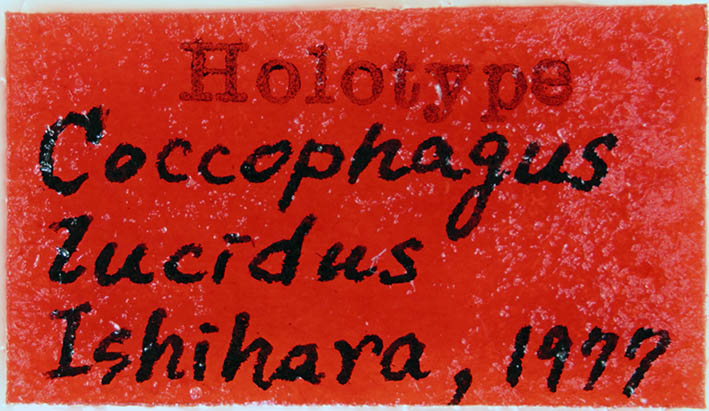 Holotype
Coccophagus
lucidus
Ishihara, 1977